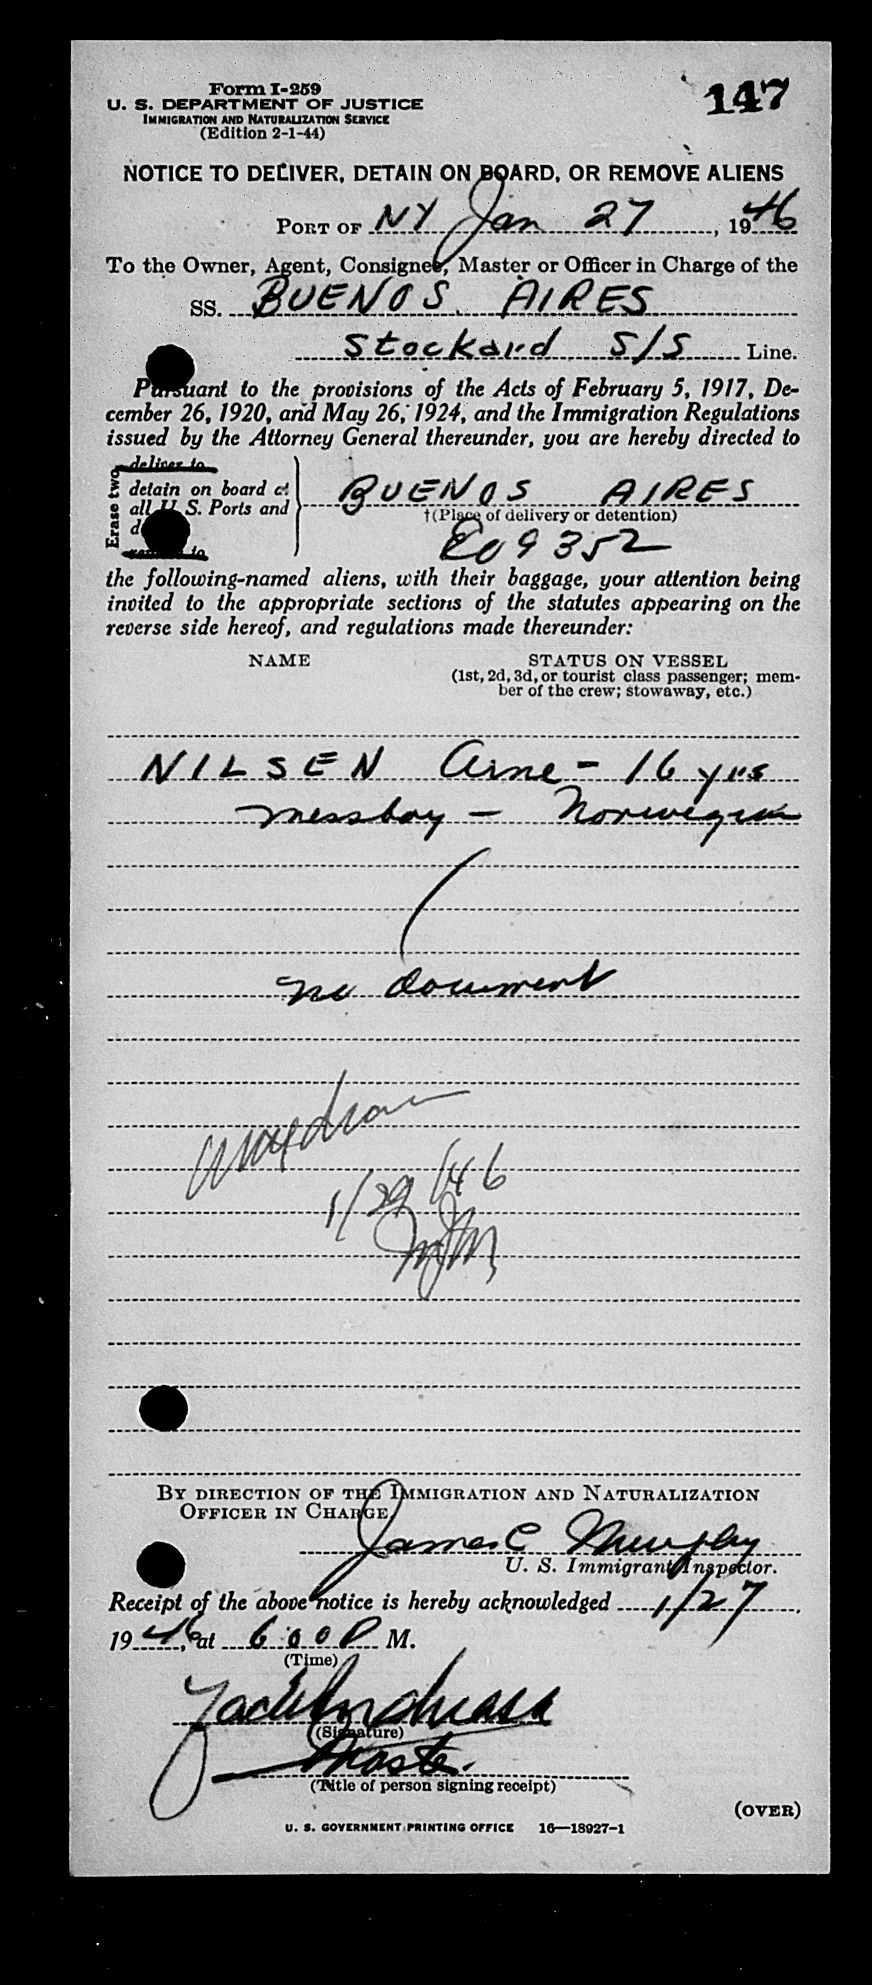 Form I-259
U. S. DEPARTMENT OF JUSTICE
IMMIGRATION AND NATURALIZATION SERVICE
(Edition 2-1-44)
147
NOTICE TO DELIVER, DETAIN ON BOARD, OR REMOVE ALIENS
PORT OF NY Jan 27, 1946
To the Owner, Agent, Consignee, Master or Officer in Charge of the
SS. BUENOS AIRES
Stockard S/S Line.
Pursuant to the provisions of the Acts of February 5, 1917, De-
cember 26, 1920, and May 26, 1924, and the Immigration Regulations
issued by the Attorney General thereunder, you are hereby directed to
Erase two
deliver to
detain on board at
all U. S. Ports and
remove to
BUENOS AIRES
†(Place of delivery or detention)
809352
the following-named aliens, with their baggage, your attention being
invited to the appropriate sections of the statutes appearing on the
reverse side hereof, and regulations made thereunder:
NAME STATUS ON VESSEL
(1st, 2d, 3d, or tourist class passenger; mem-
ber of the crew; stowaway, etc.)
NILSEN Arne - 16 yrs
messboy - Norwegian
no document
1/29/46
BY DIRECTION OF THE IMMIGRATION AND NATURALIZATION
OFFICER IN CHARGE
James C Murphy
U. S. Immigrant Inspector.
Receipt of the above notice is hereby acknowledged 1/27,
1946, at 6:00 P M.
(Time)
(Signature)
Master
(Title of person signing receipt)
(OVER)
U. S. GOVERNMENT PRINTING OFFICE 16—18927-1